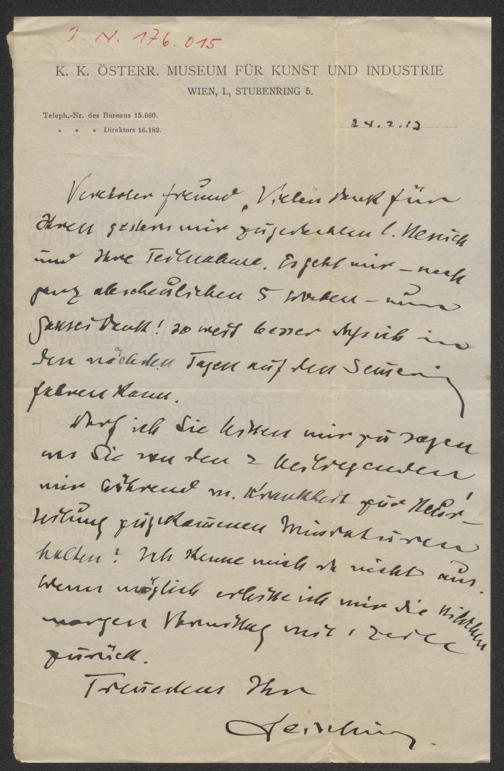 J. N. 176.015
K. K. ÖSTERR. MUSEUM FÜR KUNST UND INDUSTRIE
WIEN, I., STUBENRING 5.
Teleph.-Nr. des Bureaus 15.660.
„ „ „ Direktors 16.182.
24.2.13
Verehrter Freund, Vielen Dank für
Ihren gestern mir zugedachten l. Besuch
und Ihre Teilnahme. Es geht mir – nach
ganz abscheulichen 5 Wochen – nun
Gottseidank! so weit besser daß ich in
den nächsten Tagen auf den Semmering
fahren kann.
Darf ich Sie bitten mir zu sagen
was Sie von den 2 beiliegenden
mir während m. Krankheit zur
zugekommenen Miniaturen
halten? Ich kenne mich da nicht aus.
Wenn möglich erbitte ich mir die
morgen Vormittag mit 1 Zeile
zurück.
Treuestens Ihr
Leisching.